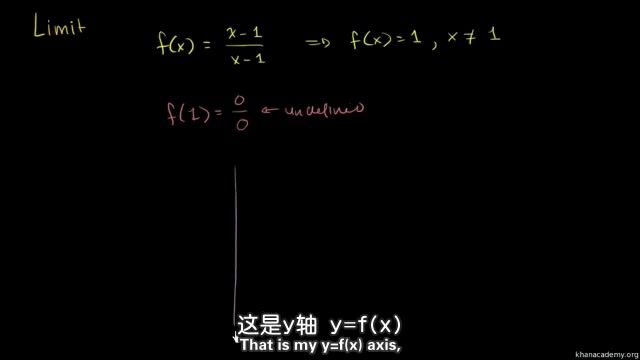 Limit
f(x) = x-1 / x-1 ⇒ f(x) = 1 , x ≠ 1
f(1) = 0 / 0 ← undefined
这是y轴 y=f(x)
That is my y=f(x) axis,
khanacademy.org